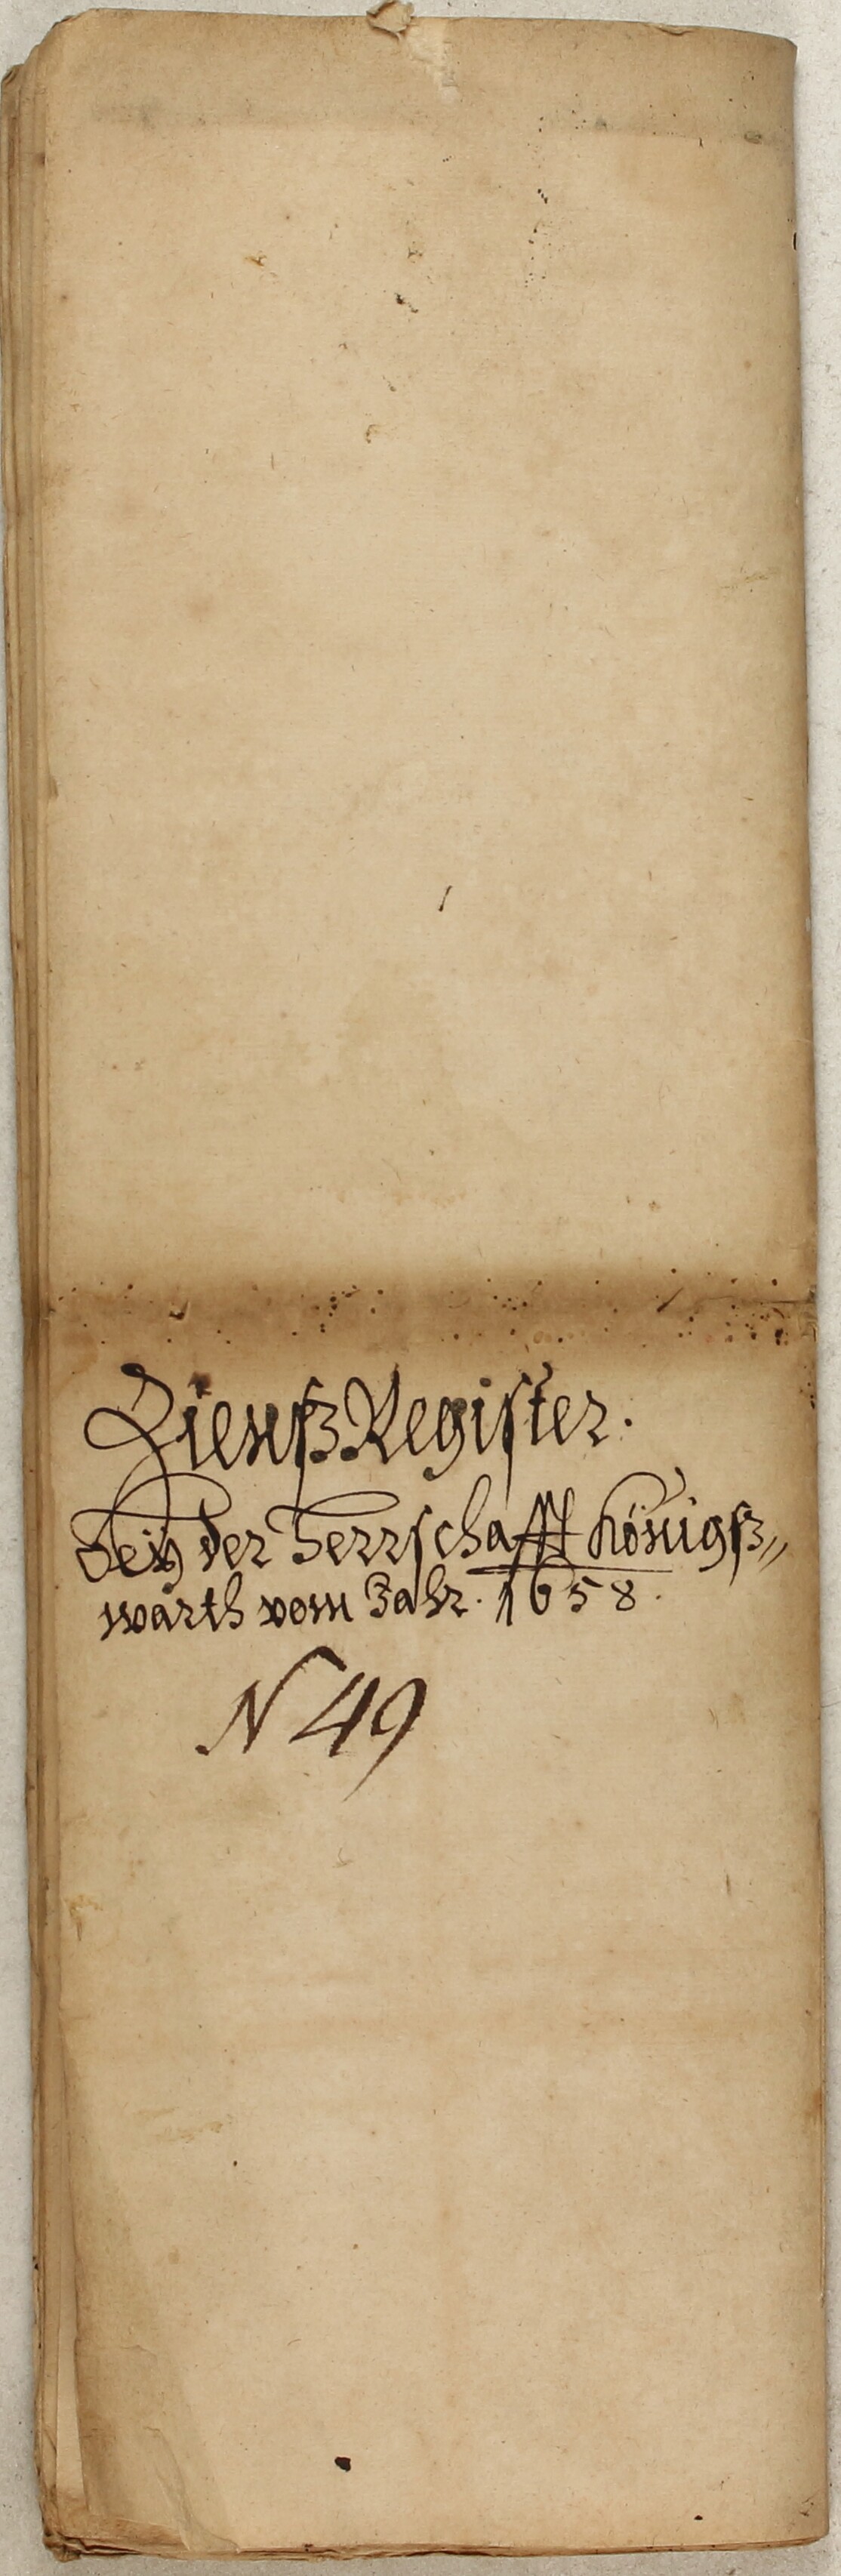 Zienß Register.
Beÿ der Herrschafft Königß„
warth vom Jahr. 1658.
N 49